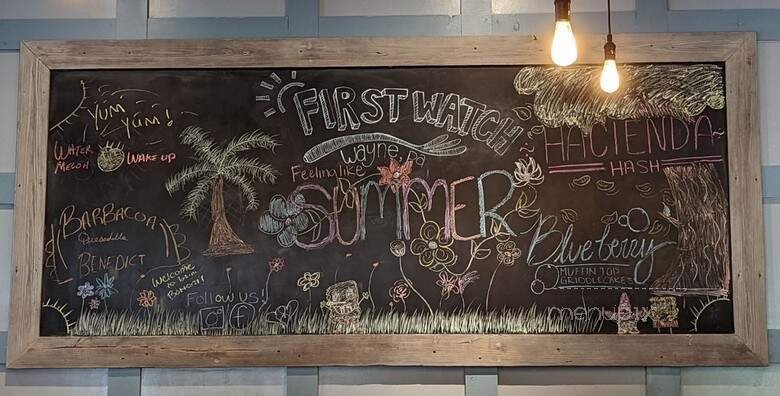 YUM
YUM!
FIRST WATCH
Wayne, Pa
Feeling like
SUMMER
WATER
MELON
WAKE UP
HACIENDA
HASH
BARBACOA
Quesadilla
BENEDICT
Welcome
to
Follow us!
Blueberry
MUFFIN TOP
GRIDDLECAKES
menupix